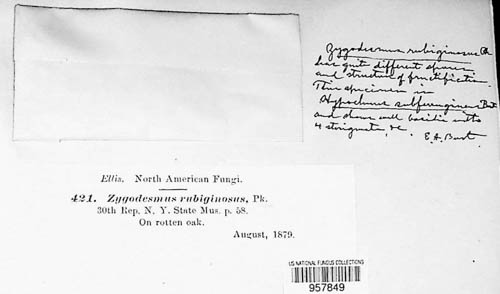 Zygodesmus rubiginosus Pk
has quite different spores
and structure of fructification.
This specimen is
Hypochnus subferrugineus Burt
and shows well basidia with
4 sterigmata, &c.
E. A. Burt.
Ellis. North American Fungi.
421. Zygodesmus rubiginosus, Pk.
30th Rep. N. Y. State Mus. p. 58.
On rotten oak.
August, 1879.
US NATIONAL FUNGUS COLLECTIONS
957849